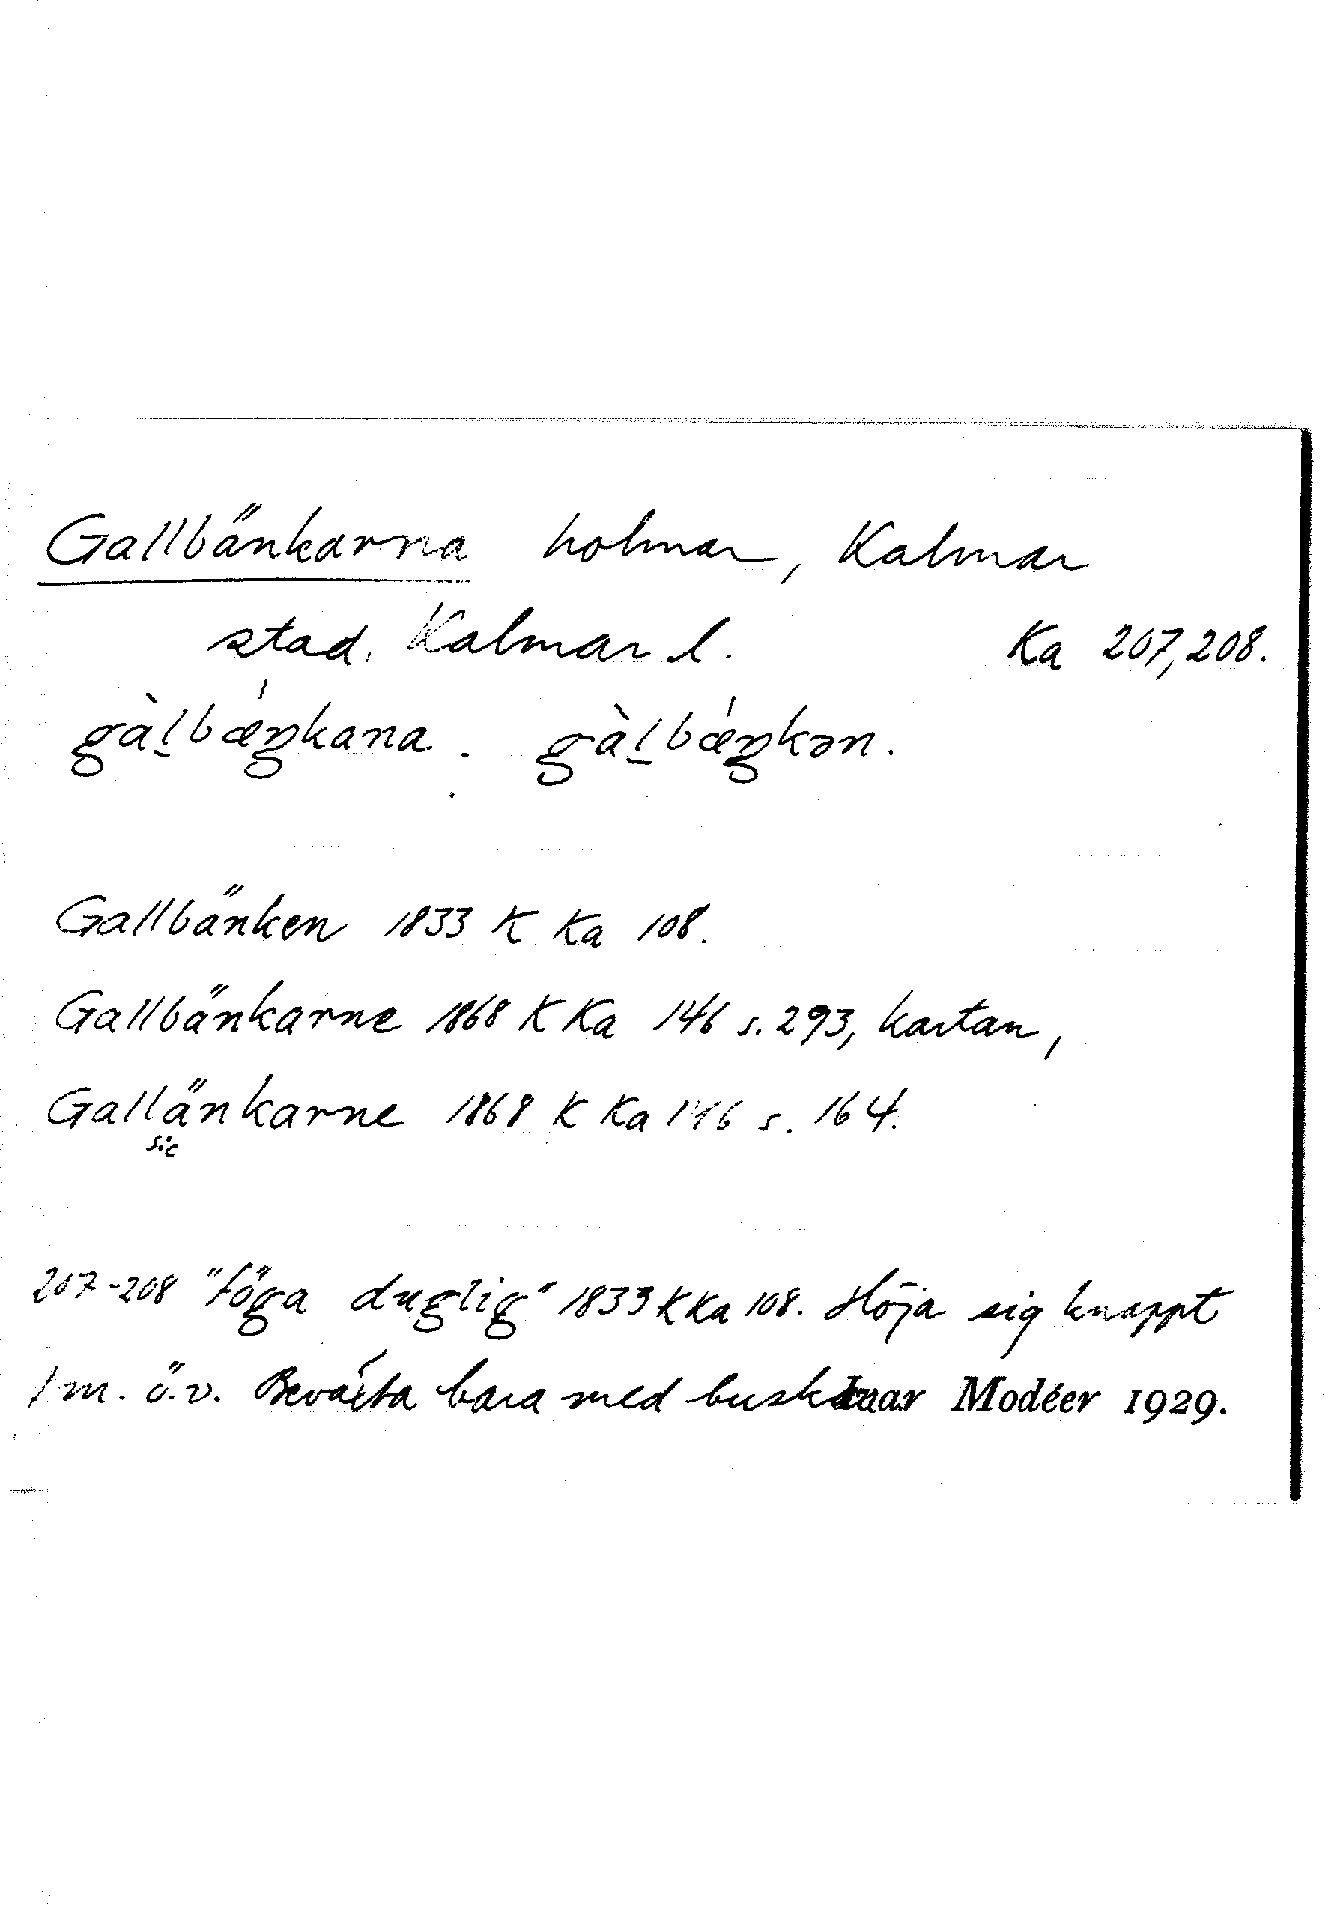 Gallbänkarna holmar, Kalmar
stad, Kalmar l. Ka 207,208.
gàl̠bæ̀ŋkana. gàl̠bæ̀ŋkən.
Gallbänken 1833 K Ka 108.
Gallbänkarne 1868 K Ka 146 s. 293, kartan,
Gallänkarne 1868 K Ka 146 s. 164.
sic
207-208 "föga duglig" 1833 K Ka 108. Höja sig knappt
1 m. ö.v. Beväxta bara med buskar Modéer 1929.